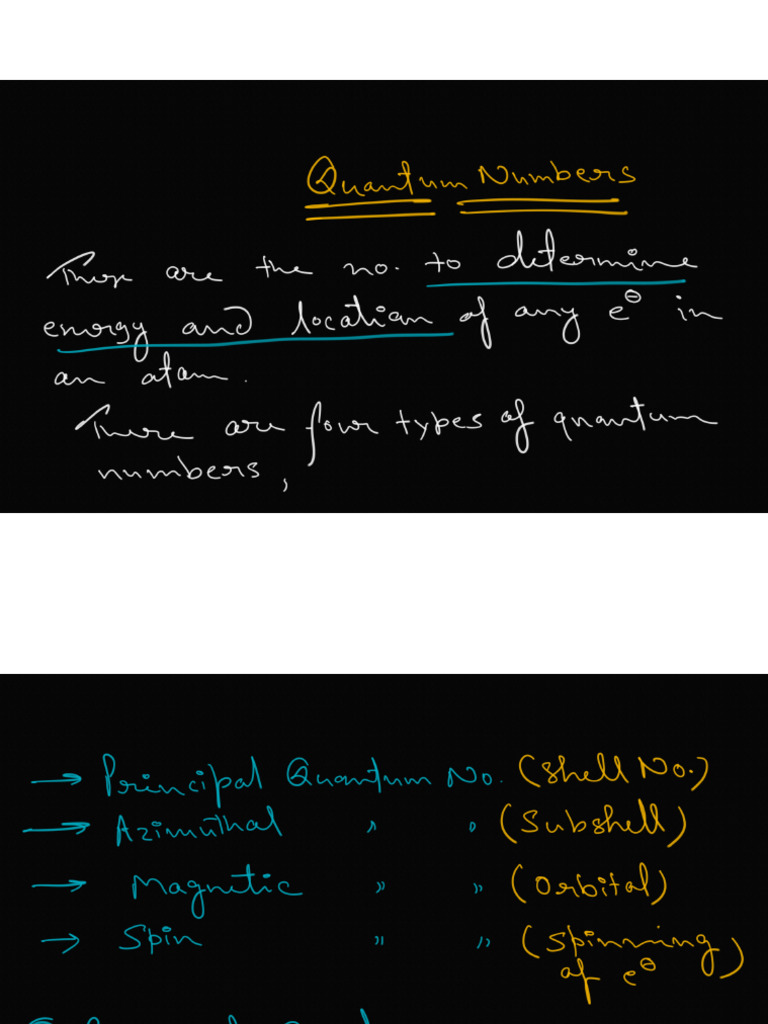 Quantum Numbers
These are the no. to determine
energy and location of any e⊖ in
an atom.
There are four types of quantum
numbers,
→ Principal Quantum No. (Shell No.)
→ Azimuthal " " (Subshell)
→ Magnetic " " (Orbital)
→ Spin " " (Spinning
of e⊖)